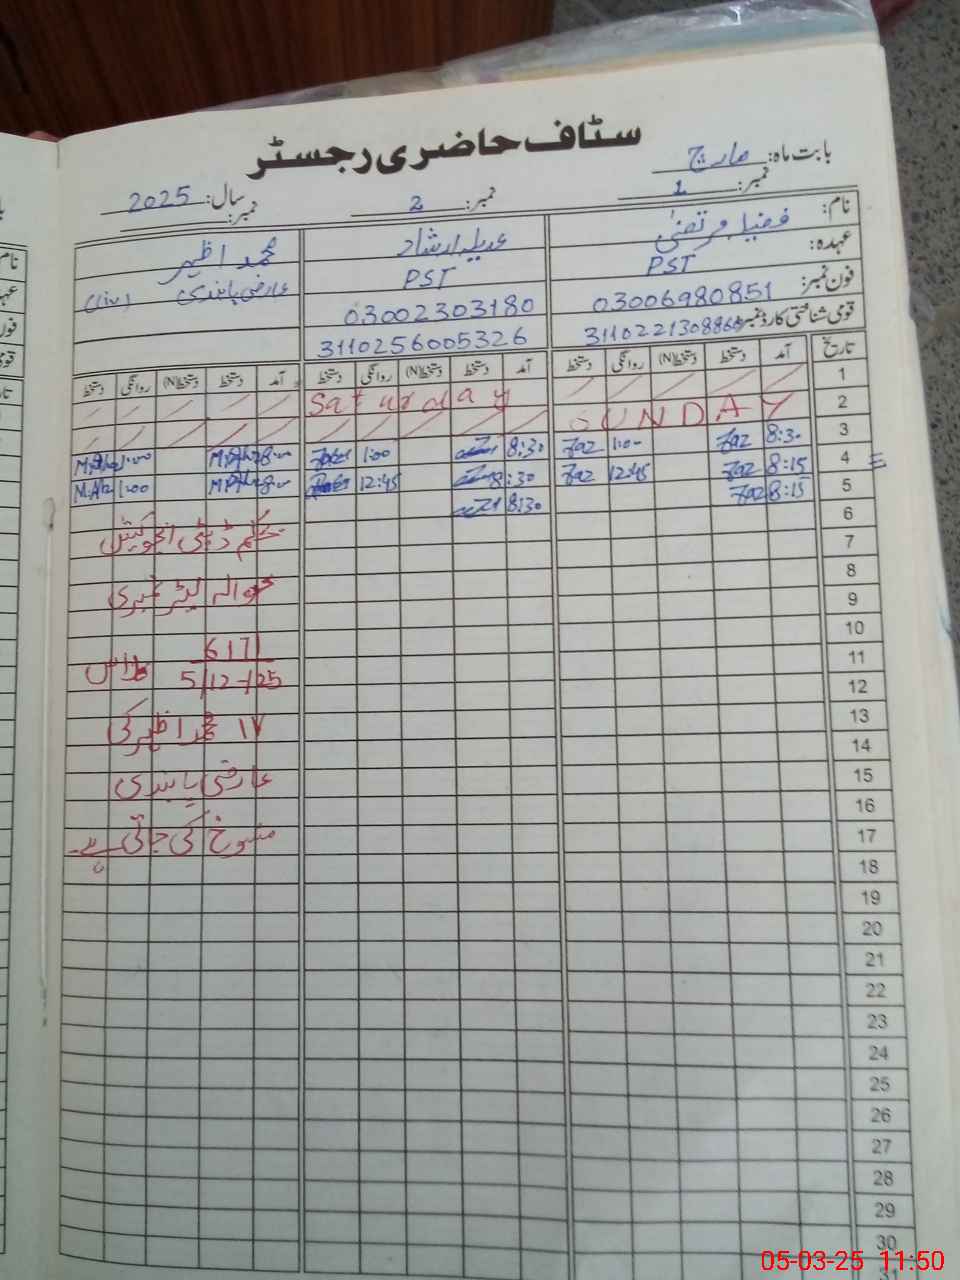 سٹاف حاضری رجسٹر
بابت ماہ: مارچ
سال: 2025
نمبر: 1
نمبر: 2
نمبر:
نام: مرتضیٰ
عہدہ: PST
فون نمبر: 03006980851
قومی شناختی کارڈ نمبر:
عدیلہ ارشاد
PST
03002303180
3110256005326
محمد اظہر
عارضی پابندی
تاریخ آمد دستخط دستخط(N) روانگی دستخط آمد دستخط دستخط(N) روانگی دستخط آمد دستخط دستخط(N) روانگی دستخط
1
2 SUNDAY Saturday
3 8:30 Faz 1:00 Faz 8:30 1:00 8:00 1:00
4 8:15 Faz 12:45 Faz 8:30 12:45 8:00 1:00
5 8:15 Faz 8:30
6
7
8
9
10
11
12
13
14
15
16
17
18
19
20
21
22
23
24
25
26
27
28
29
30
31
بحکم ڈپٹی ایجوکیشن
بحوالہ لیٹر نمبری
6171
5/12-/25
محمد اظہر کی
عارضی پابندی
منسوخ کی جاتی ہے۔
05-03-25 11:50